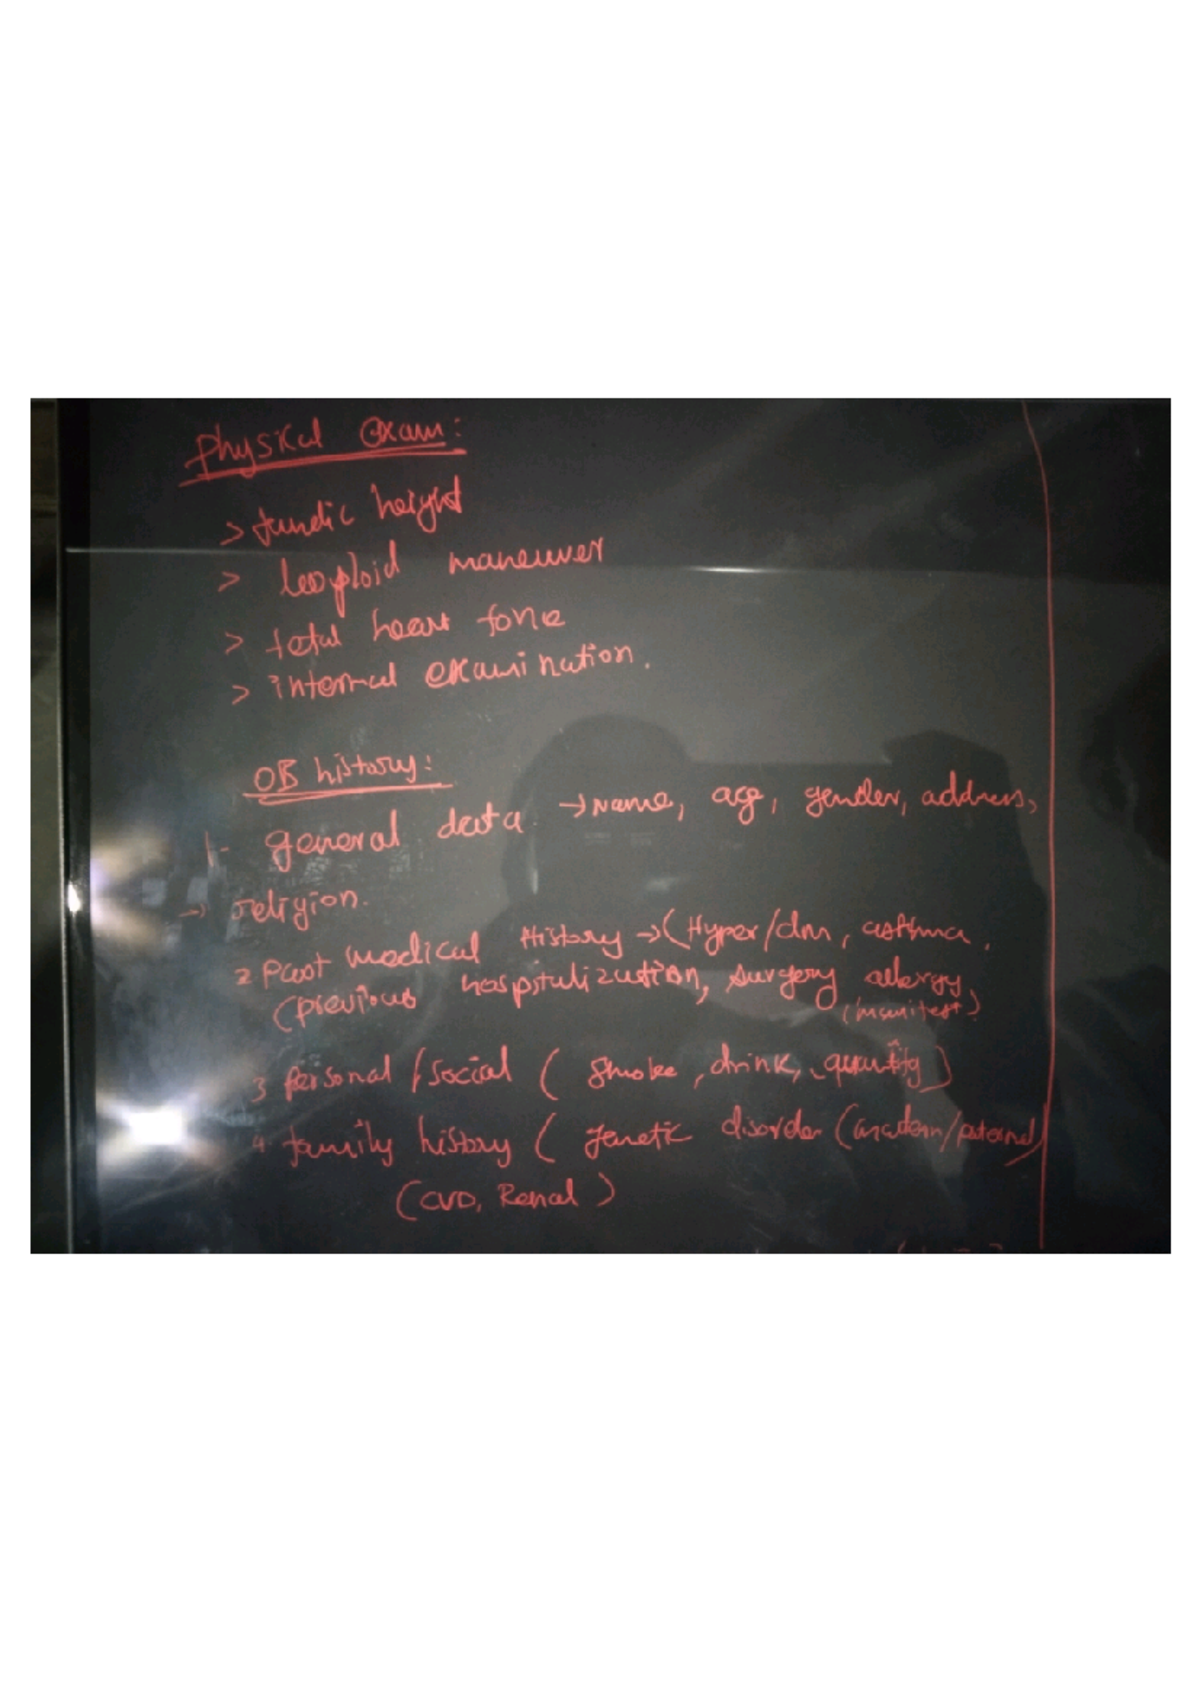 Physical exam:
> fundic height
> leoploid maneuver
> fetal heart tone
> internal examination.
OB history:
1- general data → Name, age, gender, address,
→ religion.
2 Past medical History → (Hyper/dm, asthma,
(previous hospitalization, surgery allergy,
(manifest)
3 personal / social ( smoke, drink, quantity )
4. family history ( genetic disorder ( /paternal)
(CVD, Renal )